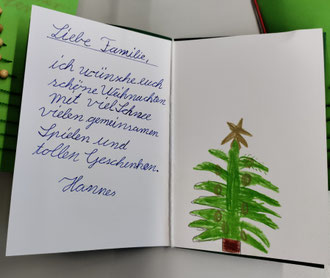 Liebe Familie,
ich wünsche euch
schöne Weihnachten
mit viel Schnee
vielen gemeinsamen
Spielen und
tollen Geschenken.
Hannes